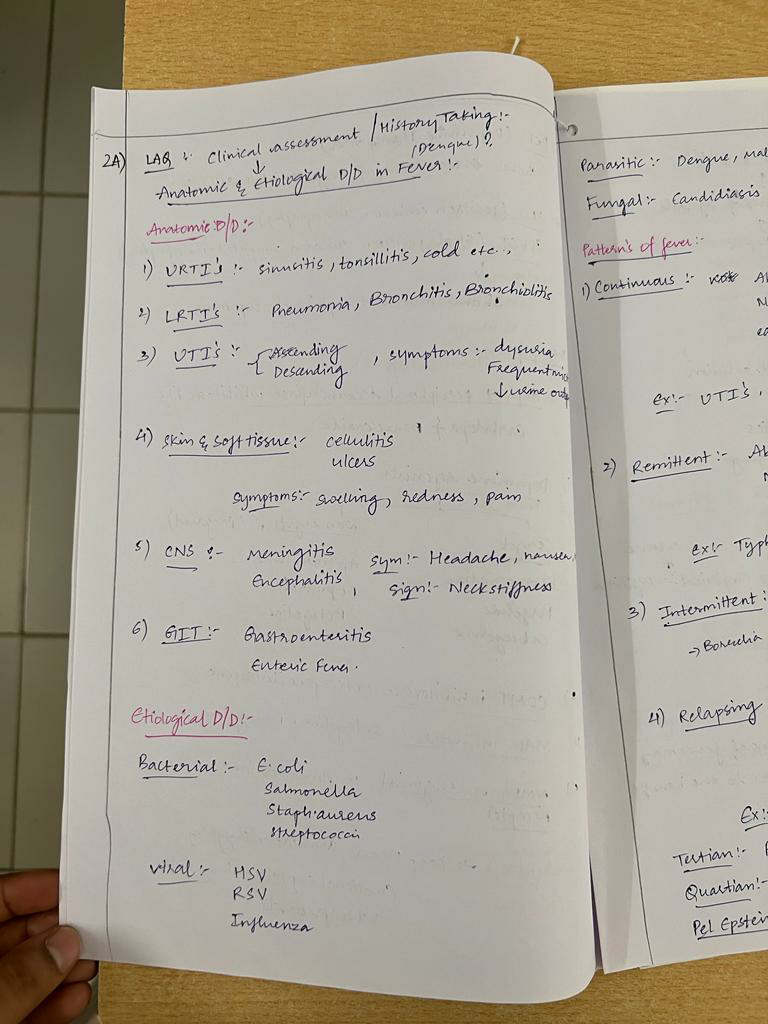 2A) LAQ :- Clinical assessment / History Taking :-
(Dengue)?
Anatomic & Etiological D/D in Fever :-
Anatomic D/D :-
1) URTI's :- sinusitis, tonsillitis, cold etc.,
2) LRTI's :- Pneumonia, Bronchitis, Bronchiolitis
3) UTI's :- Ascending , symptoms :- dysuria
Descending Frequent mic
↓ urine out
4) Skin & Soft tissue :- cellulitis
ulcers
Symptoms :- swelling, redness, pain
5) CNS :- Meningitis Sym :- Headache, nausea,
Encephalitis, Sign :- Neck stiffness
6) GIT :- Gastroenteritis
Enteric Fever.
Etiological D/D :-
Bacterial :- E.coli
Salmonella
Staph.aureus
Streptococci
Viral :- HSV
RSV
Influenza
Parasitic :- Dengue, Mal
Fungal :- Candidiasis
Pattern's of fever :-
1) Continuous :-
Ex :- UTI's,
2) Remittent :-
Ex :- Typh
3) Intermittent :
→ Borrelia
4) Relapsing
Ex :-
Tertian :-
Quartian :-
Pel Epstein